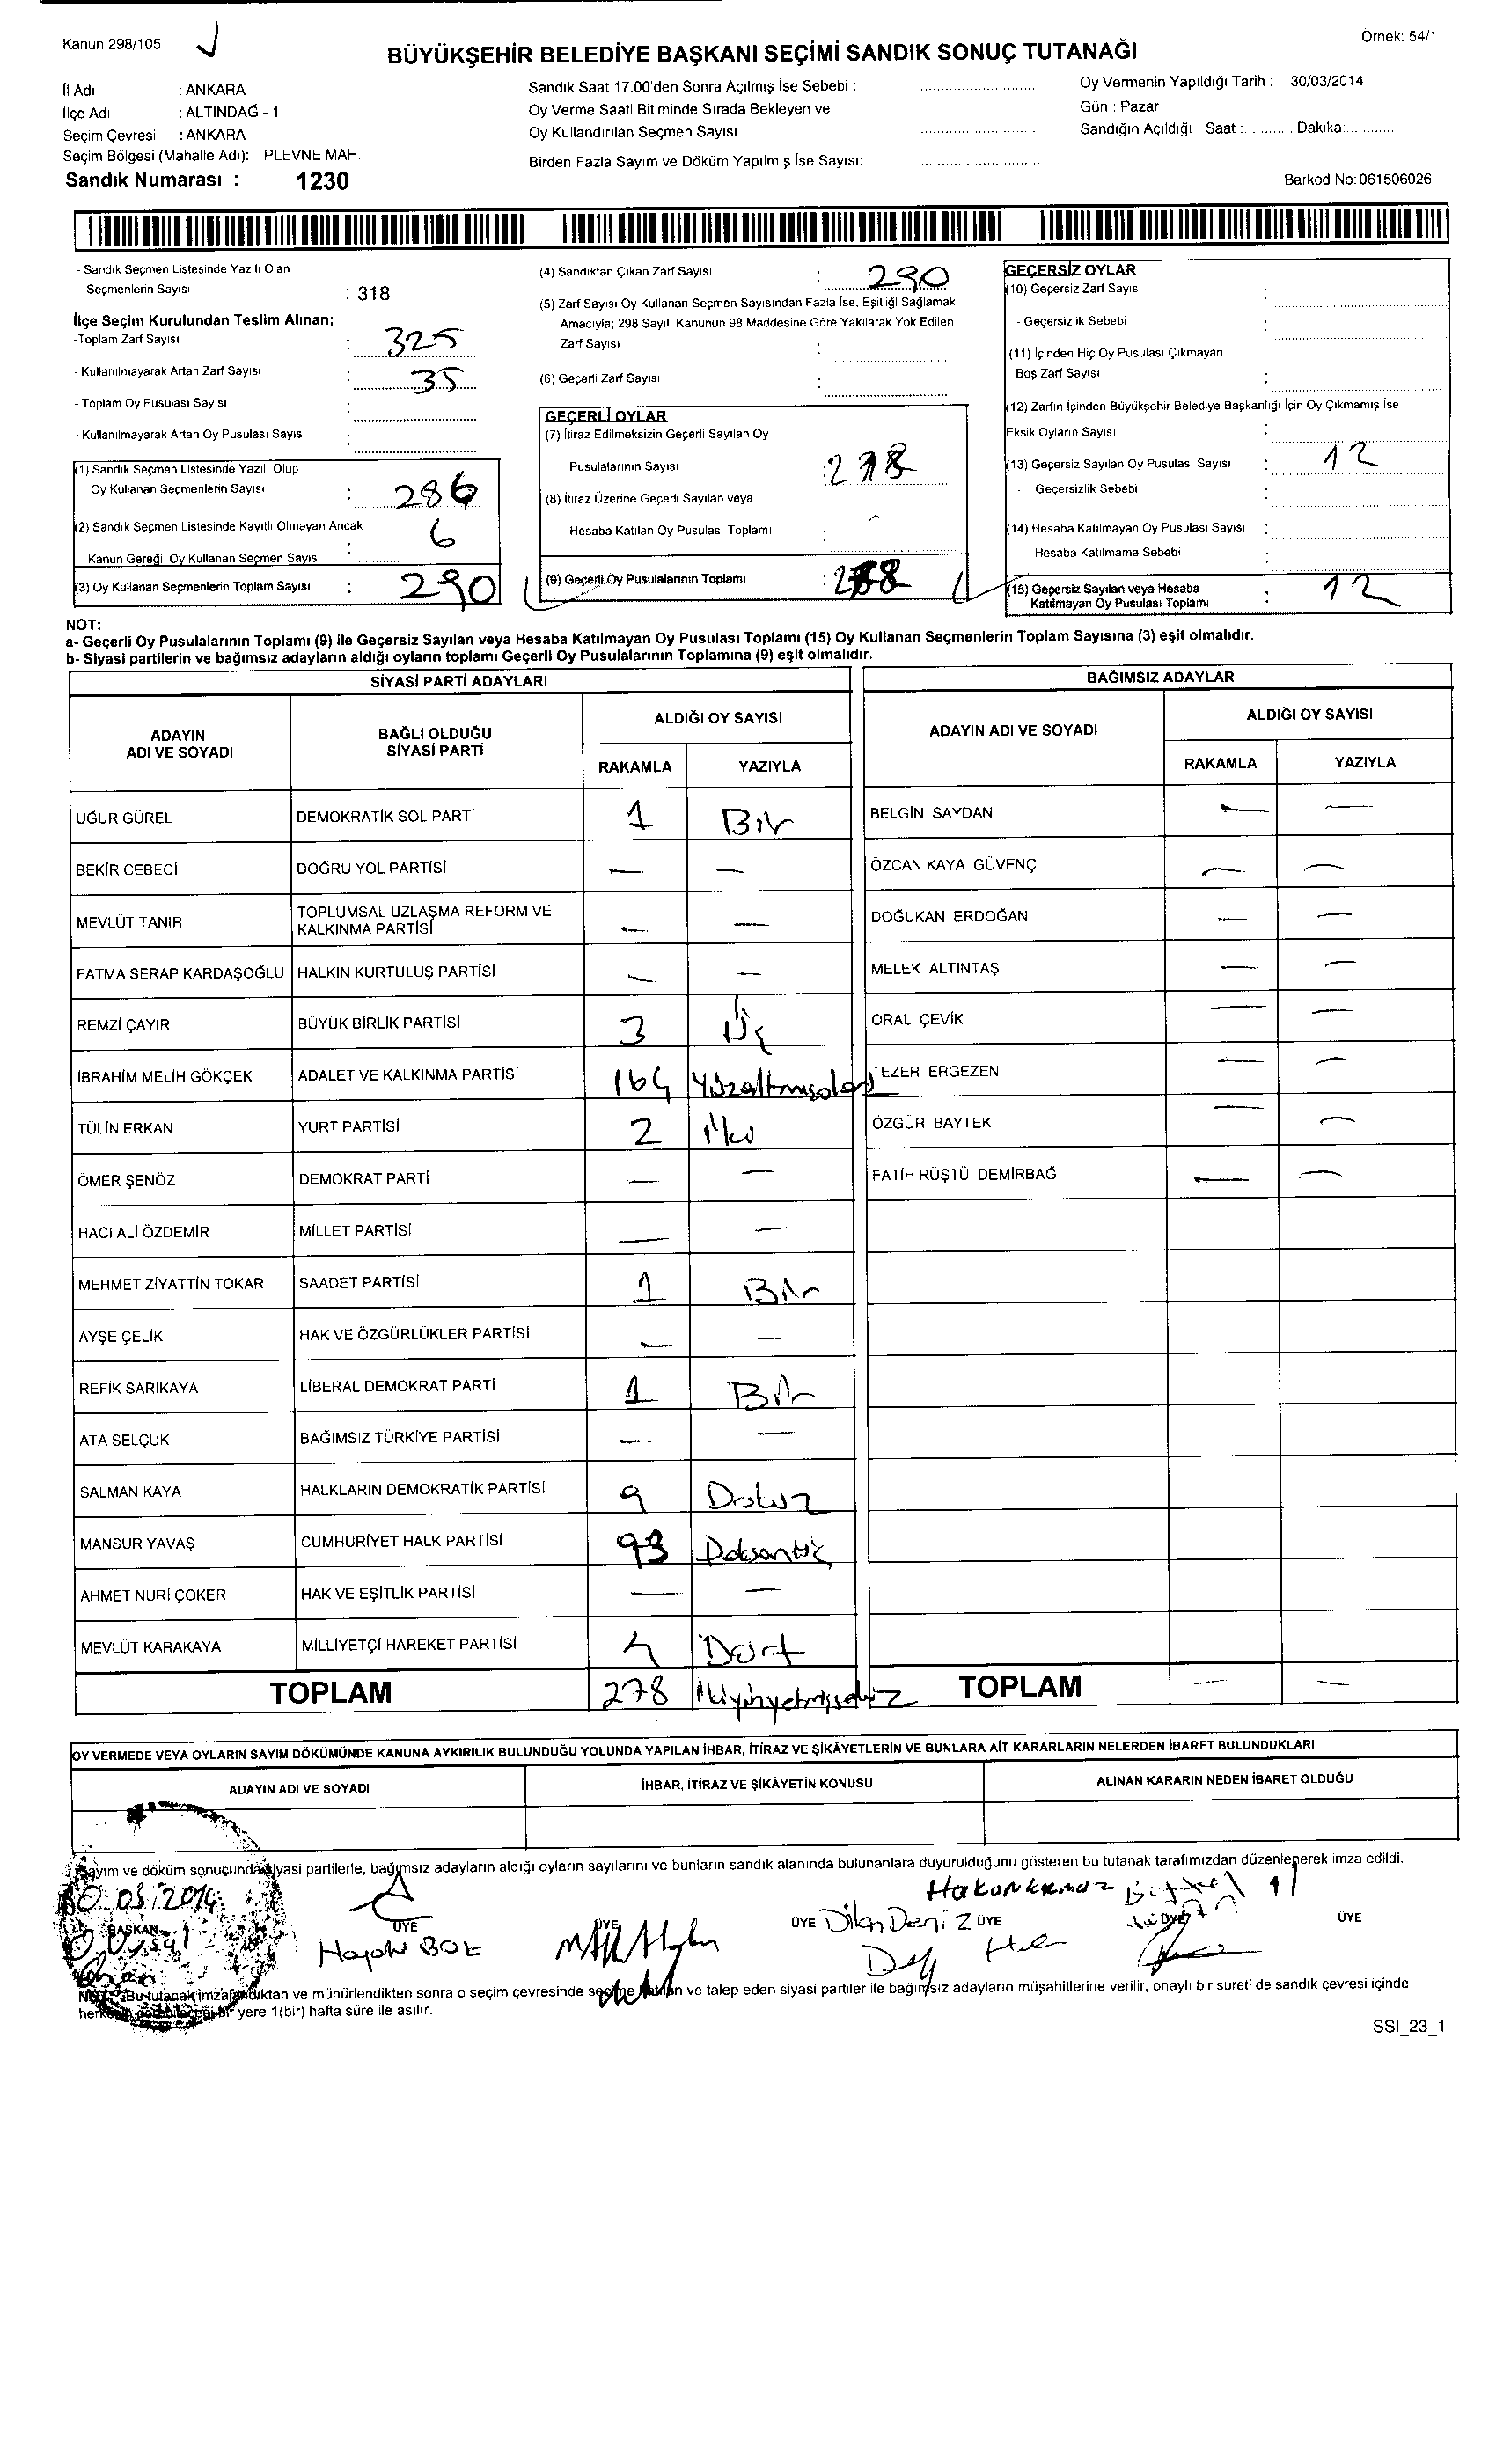 Kanun;298/105
Örnek: 54/1
BÜYÜKŞEHİR BELEDİYE BAŞKANI SEÇİMİ SANDIK SONUÇ TUTANAĞI
İl Adı : ANKARA
İlçe Adı : ALTINDAĞ - 1
Seçim Çevresi : ANKARA
Seçim Bölgesi (Mahalle Adı): PLEVNE MAH.
Sandık Numarası : 1230
Sandık Saat 17.00'den Sonra Açılmış İse Sebebi :
Oy Verme Saati Bitiminde Sırada Bekleyen ve
Oy Kullandırılan Seçmen Sayısı :
Birden Fazla Sayım ve Döküm Yapılmış İse Sayısı:
Oy Vermenin Yapıldığı Tarih : 30/03/2014
Gün : Pazar
Sandığın Açıldığı Saat :............ Dakika:............
Barkod No:061506026
- Sandık Seçmen Listesinde Yazılı Olan
Seçmenlerin Sayısı : 318
İlçe Seçim Kurulundan Teslim Alınan;
-Toplam Zarf Sayısı : 325
- Kullanılmayarak Artan Zarf Sayısı : 35
- Toplam Oy Pusulası Sayısı :
- Kullanılmayarak Artan Oy Pusulası Sayısı :
(1) Sandık Seçmen Listesinde Yazılı Olup
Oy Kullanan Seçmenlerin Sayısı : 286
(2) Sandık Seçmen Listesinde Kayıtlı Olmayan Ancak
Kanun Gereği Oy Kullanan Seçmen Sayısı : 6
(3) Oy Kullanan Seçmenlerin Toplam Sayısı : 290
(4) Sandıktan Çıkan Zarf Sayısı : 290
(5) Zarf Sayısı Oy Kullanan Seçmen Sayısından Fazla İse, Eşitliği Sağlamak
Amacıyla; 298 Sayılı Kanunun 98.Maddesine Göre Yakılarak Yok Edilen
Zarf Sayısı :
(6) Geçerli Zarf Sayısı :
GEÇERLİ OYLAR
(7) İtiraz Edilmeksizin Geçerli Sayılan Oy
Pusulalarının Sayısı : 278
(8) İtiraz Üzerine Geçerli Sayılan veya
Hesaba Katılan Oy Pusulası Toplamı : -
(9) Geçerli Oy Pusulalarının Toplamı : 278
GEÇERSİZ OYLAR
(10) Geçersiz Zarf Sayısı :
- Geçersizlik Sebebi :
(11) İçinden Hiç Oy Pusulası Çıkmayan
Boş Zarf Sayısı :
(12) Zarfın İçinden Büyükşehir Belediye Başkanlığı İçin Oy Çıkmamış İse
Eksik Oyların Sayısı :
(13) Geçersiz Sayılan Oy Pusulası Sayısı : 12
- Geçersizlik Sebebi :
(14) Hesaba Katılmayan Oy Pusulası Sayısı :
- Hesaba Katılmama Sebebi :
(15) Geçersiz Sayılan veya Hesaba
Katılmayan Oy Pusulası Toplamı : 12
NOT:
a- Geçerli Oy Pusulalarının Toplamı (9) ile Geçersiz Sayılan veya Hesaba Katılmayan Oy Pusulası Toplamı (15) Oy Kullanan Seçmenlerin Toplam Sayısına (3) eşit olmalıdır.
b- Siyasi partilerin ve bağımsız adayların aldığı oyların toplamı Geçerli Oy Pusulalarının Toplamına (9) eşit olmalıdır.
SİYASİ PARTİ ADAYLARI
ADAYIN ADI VE SOYADI BAĞLI OLDUĞU SİYASİ PARTİ ALDIĞI OY SAYISI
RAKAMLA YAZIYLA
UĞUR GÜREL DEMOKRATİK SOL PARTİ 1 Bir
BEKİR CEBECİ DOĞRU YOL PARTİSİ — —
MEVLÜT TANIR TOPLUMSAL UZLAŞMA REFORM VE KALKINMA PARTİSİ — —
FATMA SERAP KARDAŞOĞLU HALKIN KURTULUŞ PARTİSİ — —
REMZİ ÇAYIR BÜYÜK BİRLİK PARTİSİ 3 Üç
İBRAHİM MELİH GÖKÇEK ADALET VE KALKINMA PARTİSİ 164 Yüzaltmışdört
TÜLİN ERKAN YURT PARTİSİ 2 İki
ÖMER ŞENÖZ DEMOKRAT PARTİ — —
HACI ALİ ÖZDEMİR MİLLET PARTİSİ — —
MEHMET ZİYATTİN TOKAR SAADET PARTİSİ 1 Bir
AYŞE ÇELİK HAK VE ÖZGÜRLÜKLER PARTİSİ — —
REFİK SARIKAYA LİBERAL DEMOKRAT PARTİ 1 Bir
ATA SELÇUK BAĞIMSIZ TÜRKİYE PARTİSİ — —
SALMAN KAYA HALKLARIN DEMOKRATİK PARTİSİ 9 Dokuz
MANSUR YAVAŞ CUMHURİYET HALK PARTİSİ 93 Doksanüç
AHMET NURİ ÇOKER HAK VE EŞİTLİK PARTİSİ — —
MEVLÜT KARAKAYA MİLLİYETÇİ HAREKET PARTİSİ 4 Dört
TOPLAM 278 İkiyüzyetmişsekiz
BAĞIMSIZ ADAYLAR
ADAYIN ADI VE SOYADI ALDIĞI OY SAYISI
RAKAMLA YAZIYLA
BELGİN SAYDAN — —
ÖZCAN KAYA GÜVENÇ — —
DOĞUKAN ERDOĞAN — —
MELEK ALTINTAŞ — —
ORAL ÇEVİK — —
TEZER ERGEZEN — —
ÖZGÜR BAYTEK — —
FATİH RÜŞTÜ DEMİRBAĞ — —
TOPLAM — —
OY VERMEDE VEYA OYLARIN SAYIM DÖKÜMÜNDE KANUNA AYKIRILIK BULUNDUĞU YOLUNDA YAPILAN İHBAR, İTİRAZ VE ŞİKÂYETLERİN VE BUNLARA AİT KARARLARIN NELERDEN İBARET BULUNDUKLARI
ADAYIN ADI VE SOYADI İHBAR, İTİRAZ VE ŞİKÂYETİN KONUSU ALINAN KARARIN NEDEN İBARET OLDUĞU
Sayım ve döküm sonucunda siyasi partilerle, bağımsız adayların aldığı oyların sayılarını ve bunların sandık alanında bulunanlara duyurulduğunu gösteren bu tutanak tarafımızdan düzenlenerek imza edildi.
03/2014
BAŞKAN ÜYE ÜYE ÜYE Dilan Deniz ÜYE ÜYE ÜYE
NOT: Bu tutanak imzalandıktan ve mühürlendikten sonra o seçim çevresinde seçime katılan ve talep eden siyasi partiler ile bağımsız adayların müşahitlerine verilir, onaylı bir sureti de sandık çevresi içinde
herkesin görebileceği bir yere 1(bir) hafta süre ile asılır.
SSI_23_1